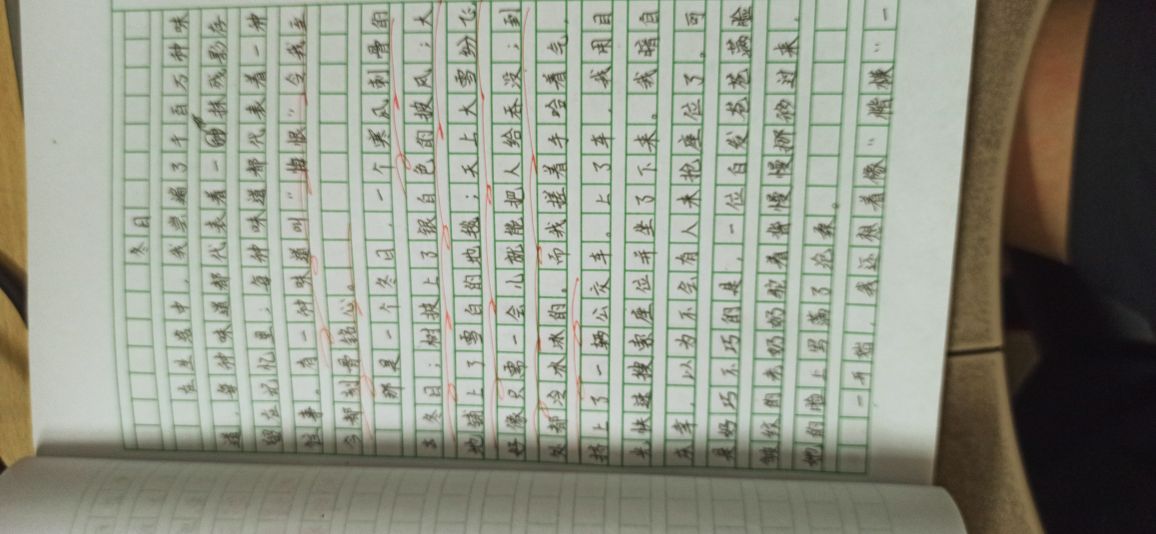 冬日
在生活中，我尝遍了千百万种味
道，每种味道都代表着一抹残影存
留在记忆里；每种味道都代表着一种
往事。有一种味道叫“悔恨”令我至
今都刻骨铭心。
那是一个冬日，一个寒风刺骨的
冬日；树披上了银白色的披风；大
地铺上了雪白的地毯；天上大雪纷飞
好像只需一会儿就能把人给吞没；到
处都冷冰冰的。而我搓着手哈着气，
搭上了一辆公交车。上了车，我用目
光快速搜索座位并坐了下来。我暗自
庆幸，以为不会有人来抢座位了。可
是好巧不巧的是，一位白发苍苍满脸
皱纹的老奶奶驼着背慢慢挪移过来，
她的脸上写满了疲衰。
一开始，我还想着像“楷模”一